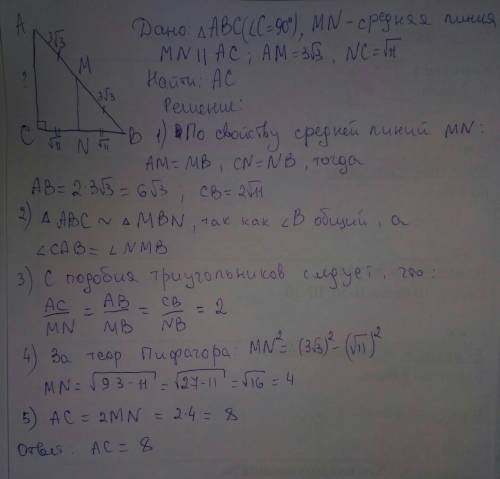 A
3√3
M
?
3√3
C
√11
N
√11
B
Дано: △ABC(∠C=90°), MN-средняя линия
MN ∥ AC ; AM=3√3 , NC=√11
Найти: AC
Решение:
1) По свойству средней линий MN:
AM = MB, CN=NB, тогда
AB= 2·3√3 = 6√3 ; CB= 2√11
2) △ABC ~ △MBN, так как ∠B общий, а
∠CAB = ∠NMB
3) С подобия треугольников следует, что:
AC/MN = AB/MB = CB/NB = 2
4) За теор Пифагора: MN² = (3√3)² - (√11)²
MN = √9·3-11 = √27-11 = √16 = 4
5) AC = 2MN = 2·4 = 8
Ответ. AC = 8